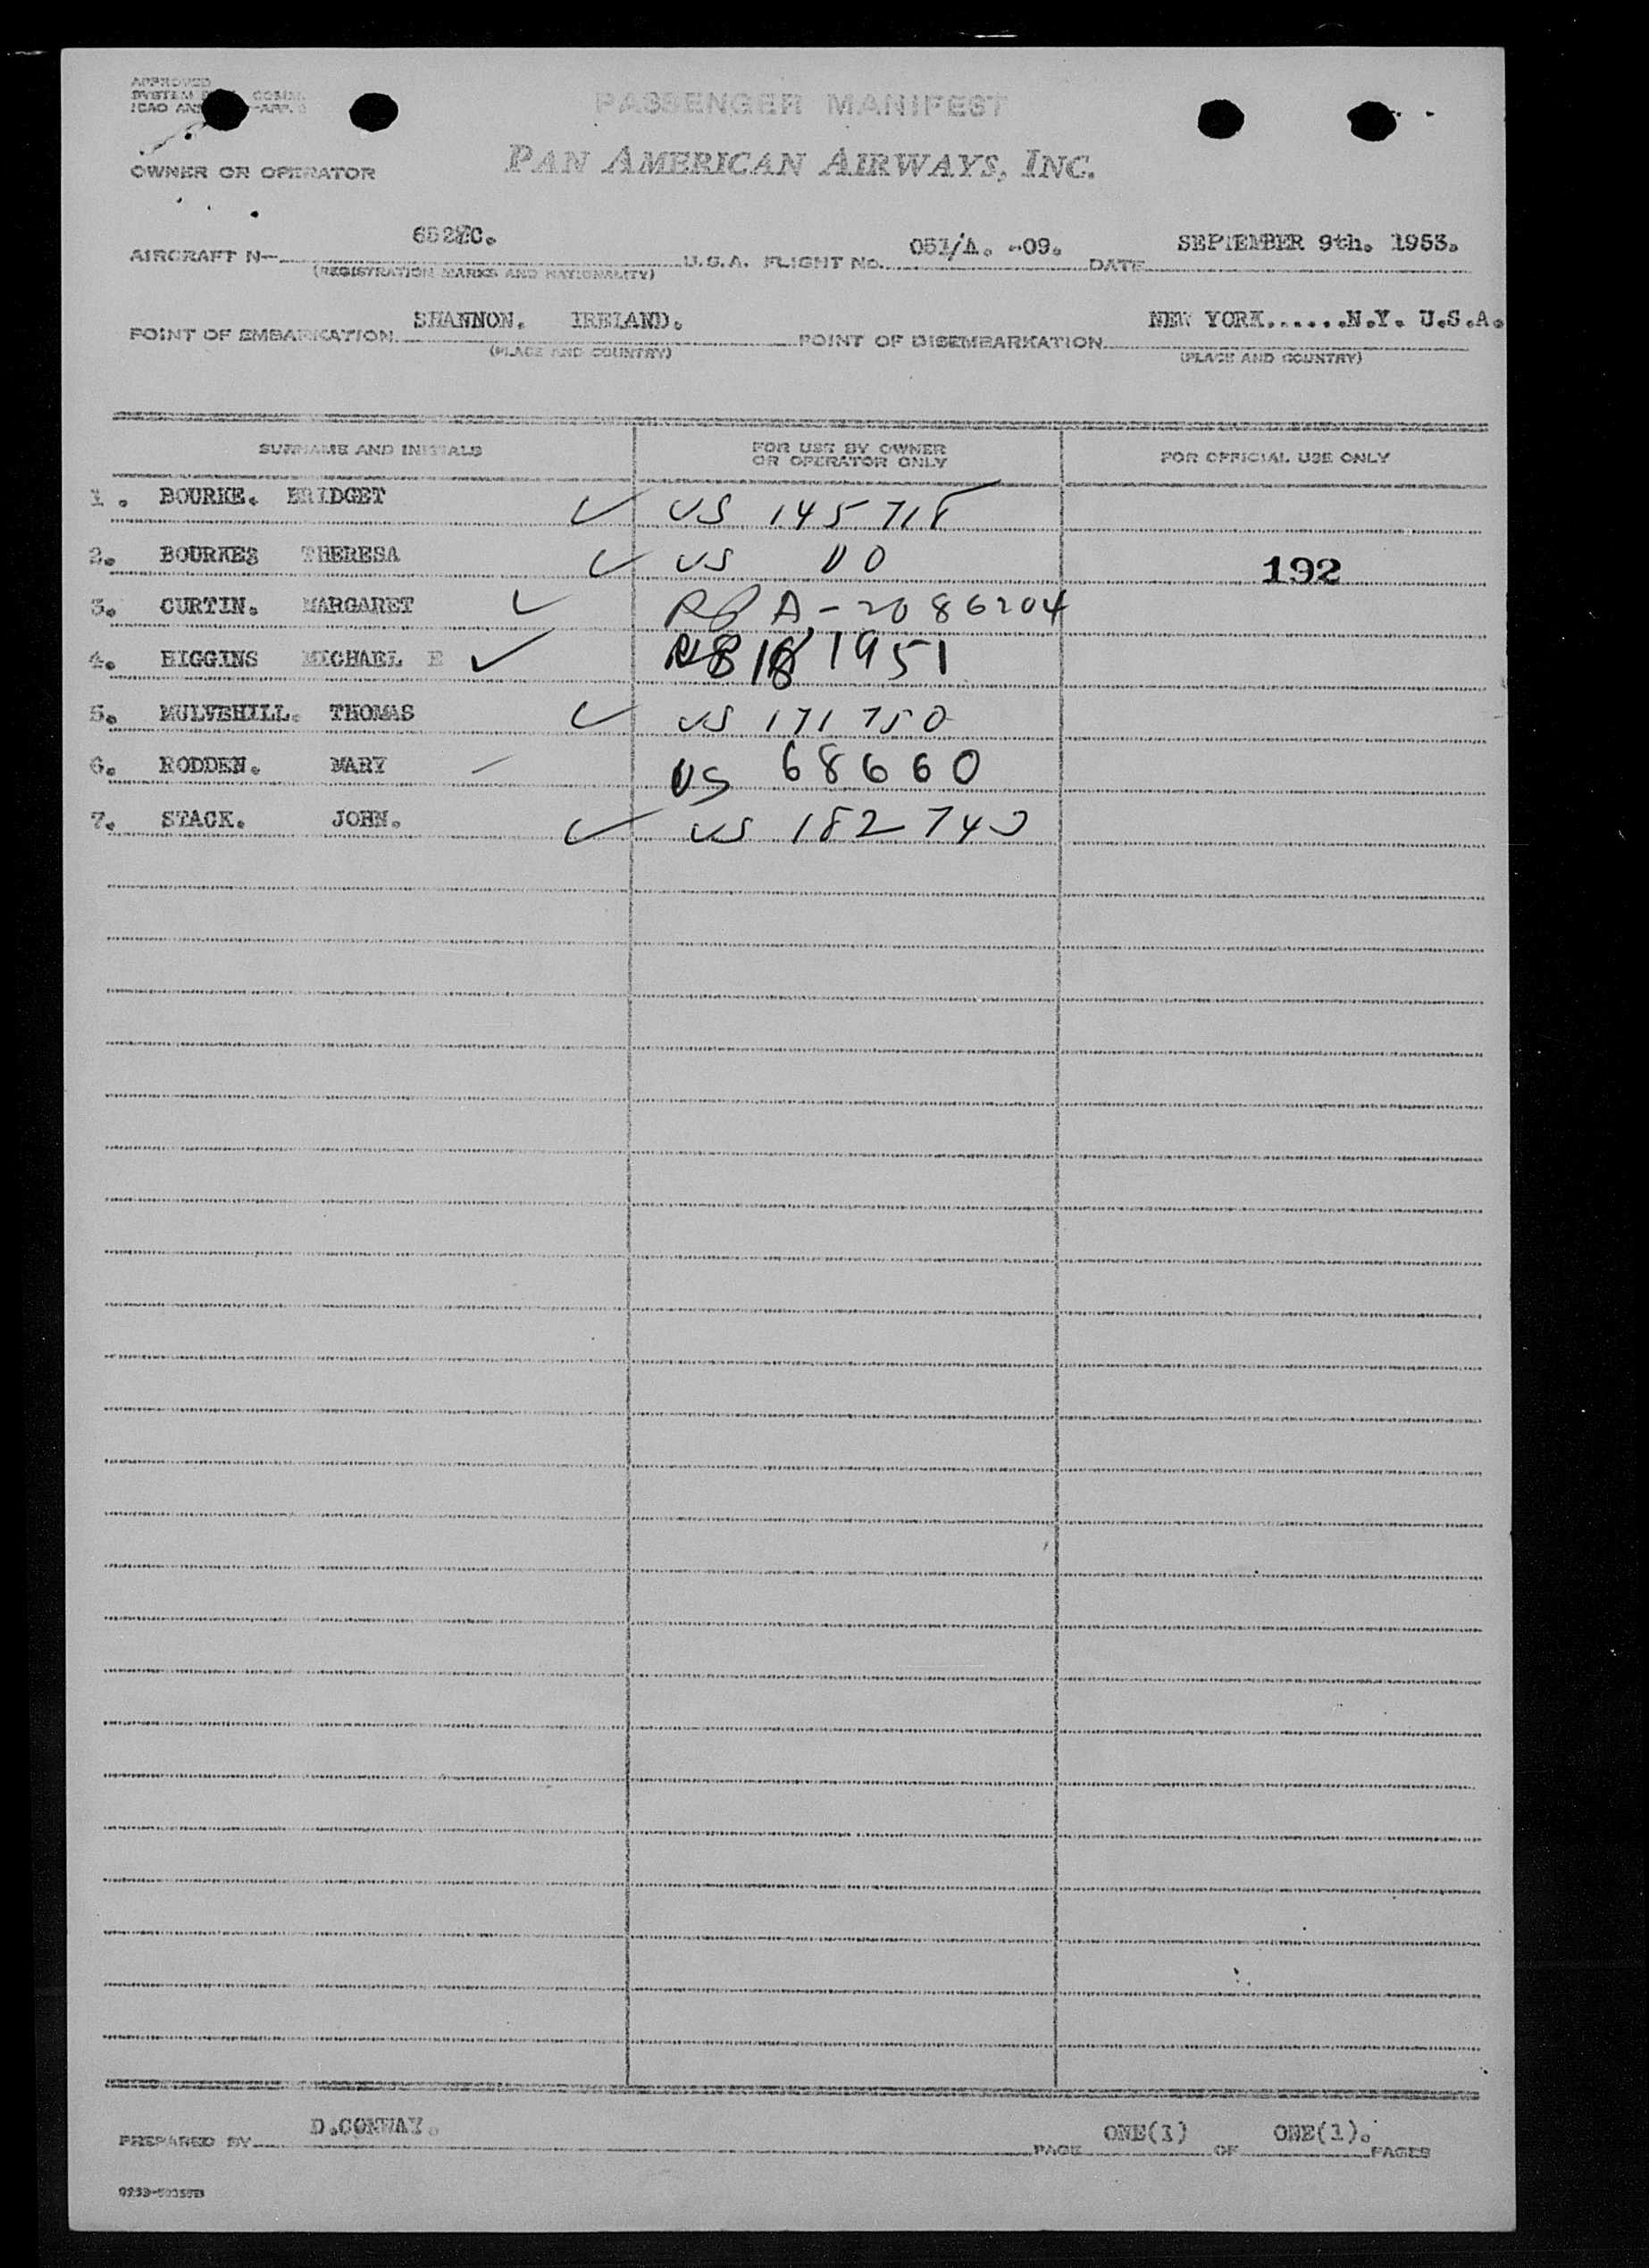 APPROVED
PASSENGER MANIFEST
PAN AMERICAN AIRWAYS, INC.
OWNER OR OPERATOR
AIRCRAFT N- U.S.A. FLIGHT NO. 051/A. -09. DATE SEPTEMBER 9th. 1953.
(REGISTRATION MARKS AND NATIONALITY)
POINT OF EMBARKATION SHANNON. IRELAND. POINT OF DISEMBARKATION NEW YORK......N.Y. U.S.A.
(PLACE AND COUNTRY) (PLACE AND COUNTRY)
SURNAME AND INITIALS FOR USE BY OWNER OR OPERATOR ONLY FOR OFFICIAL USE ONLY
1. BOURKE. BRIDGET US 145718
2. BOURKES THERESA US 192
3. CURTIN. MARGARET A-2086204
4. HIGGINS MICHAEL E 1951
5. MULVEHILL. THOMAS US 171750
6. RODDEN. MARY US 68660
7. STACK. JOHN. US 182740
PREPARED BY D.CONWAY. PAGE ONE(1) OF ONE(1). PAGES